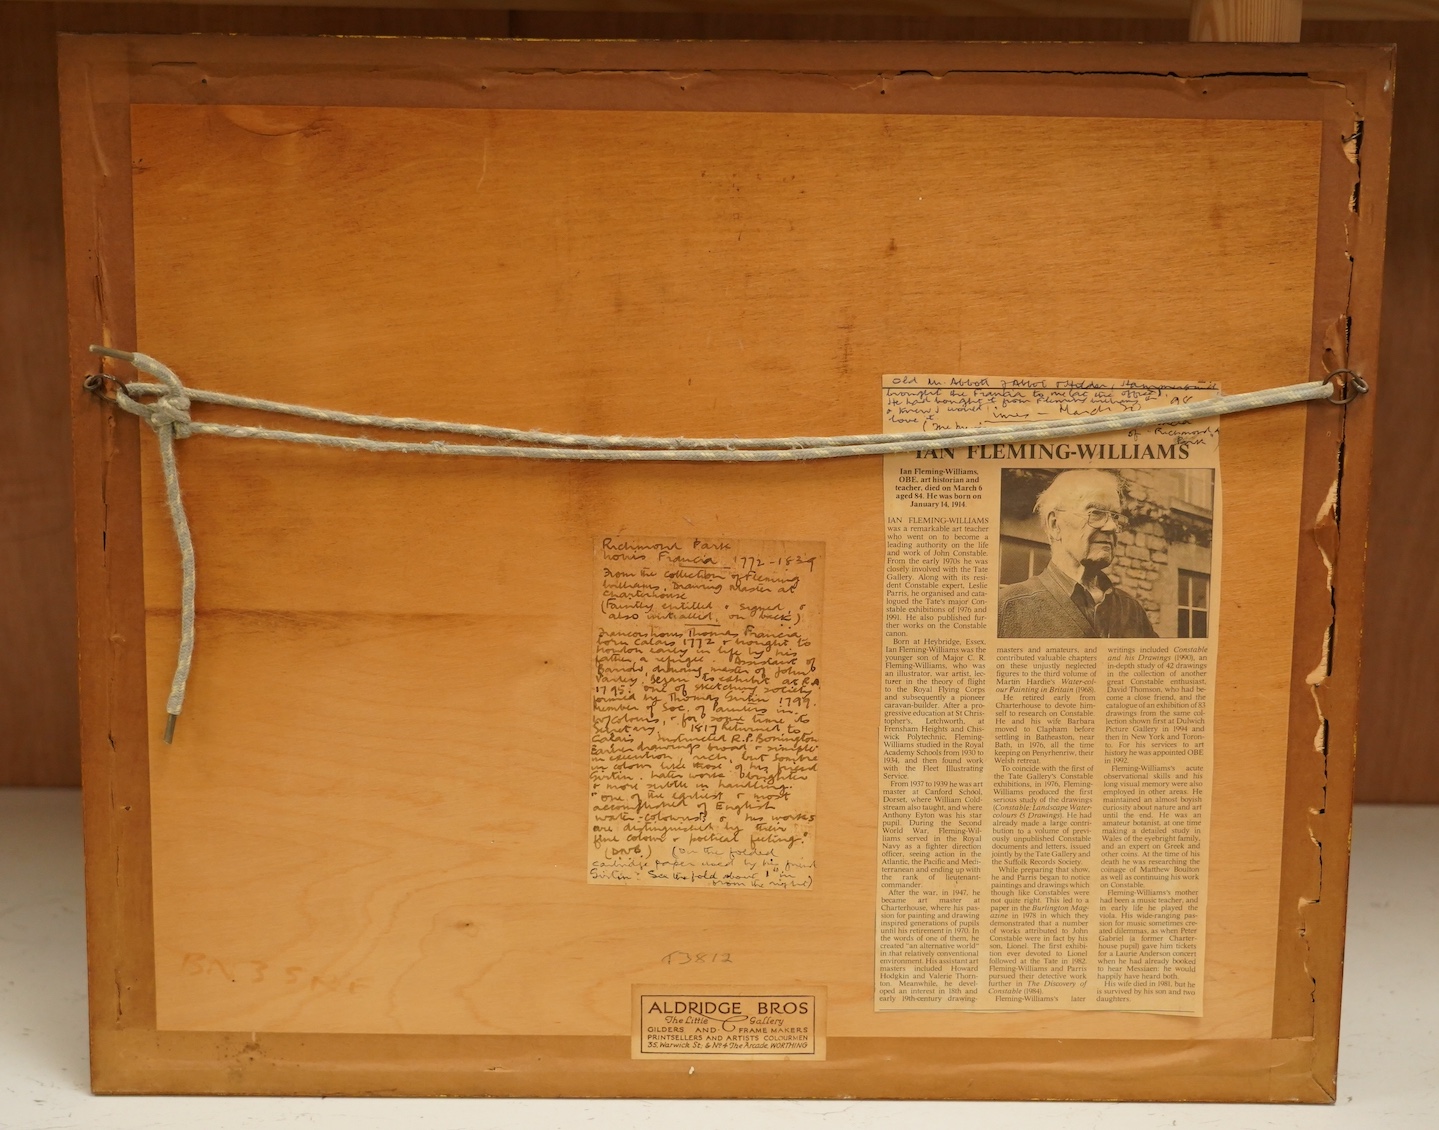 Old Mr. Abbott of Abbot & Holder,
brought the Francia to me
He had bought it from Fleming Williams
& knew I would
love it
of Richmond
Park
IAN FLEMING-WILLIAMS
Ian Fleming-Williams,
OBE, art historian and
teacher, died on March 6
aged 84. He was born on
January 14, 1914.
IAN FLEMING-WILLIAMS
was a remarkable art teacher
who went on to become a
leading authority on the life
and work of John Constable.
From the early 1970s he was
closely involved with the Tate
Gallery. Along with its resi-
dent Constable expert, Leslie
Parris, he organised and cata-
logued the Tate's major Con-
stable exhibitions of 1976 and
1991. He also published fur-
ther works on the Constable
canon.
Born at Heybridge, Essex,
Ian Fleming-Williams was the
younger son of Major C. R.
Fleming-Williams, who was
an illustrator, war artist, lec-
turer in the theory of flight
to the Royal Flying Corps
and subsequently a pioneer
caravan-builder. After a pro-
gressive education at St Chris-
topher's, Letchworth, at
Frensham Heights and Chis-
wick Polytechnic, Fleming-
Williams studied in the Royal
Academy Schools from 1930 to
1934, and then found work
with the Fleet Illustrating
Service.
From 1937 to 1939 he was art
master at Canford School,
Dorset, where William Cold-
stream also taught, and where
Anthony Eyton was his star
pupil. During the Second
World War, Fleming-Wil-
liams served in the Royal
Navy as a fighter direction
officer, seeing action in the
Atlantic, the Pacific and Medi-
terranean and ending up with
the rank of lieutenant-
commander.
After the war, in 1947, he
became art master at
Charterhouse, where his pas-
sion for painting and drawing
inspired generations of pupils
until his retirement in 1970. In
the words of one of them, he
created "an alternative world"
in that relatively conventional
environment. His assistant art
masters included Howard
Hodgkin and Valerie Thorn-
ton. Meanwhile, he devel-
oped an interest in 18th and
early 19th-century drawing-
masters and amateurs, and
contributed valuable chapters
on these unjustly neglected
figures to the third volume of
Martin Hardie's Water-col-
our Painting in Britain (1968).
He retired early from
Charterhouse to devote him-
self to research on Constable.
He and his wife Barbara
moved to Clapham before
settling in Batheaston, near
Bath, in 1976, all the time
keeping on Penyrhenriw, their
Welsh retreat.
To coincide with the first of
the Tate Gallery's Constable
exhibitions, in 1976, Fleming-
Williams produced the first
serious study of the drawings
(Constable Landscape Water-
colours & Drawings). He had
already made a large contri-
bution to a volume of previ-
ously unpublished Constable
documents and letters, issued
jointly by the Tate Gallery and
the Suffolk Records Society.
While preparing that show,
he and Parris began to notice
paintings and drawings which
though like Constables were
not quite right. This led to a
paper in the Burlington Mag-
azine in 1978 in which they
demonstrated that a number
of works attributed to John
Constable were in fact by his
son, Lionel. The first exhibi-
tion ever devoted to Lionel
followed at the Tate in 1982.
Fleming-Williams and Parris
pursued their detective work
further in The Discovery of
Constable (1984).
Fleming-Williams's later
writings included Constable
and his Drawings (1990), an
in-depth study of 42 drawings
in the collection of another
great Constable enthusiast,
David Thomson, who had be-
come a close friend, and the
catalogue of an exhibition of 83
drawings from the same col-
lection shown first at Dulwich
Picture Gallery in 1994 and
then in New York and Toron-
to. For his services to art
history he was appointed OBE
in 1992.
Fleming-Williams's acute
observational skills and his
long visual memory were also
employed in other areas. He
maintained an almost boyish
curiosity about nature and art
until the end. He was an
amateur botanist, at one time
making a detailed study in
Wales of the eyebright family,
and an expert on Greek and
other coins. At the time of his
death he was researching the
coinage of Matthew Boulton
as well as continuing his work
on Constable.
Fleming-Williams's mother
had been a music teacher, and
in early life he played the
viola. His wide-ranging pas-
sion for music sometimes cre-
ated dilemmas, as when Peter
Gabriel (a former Charter-
house pupil) gave him tickets
for a Laurie Anderson concert
when he had already booked
to hear Messiaen: he would
happily have heard both.
His wife died in 1981, but he
is survived by his son and two
daughters.
Richmond Park
Louis Francia 1772-1839
From the collection of Fleming
Williams, Drawing Master at
Charterhouse
(Faintly entitled & signed, &
also initialled, on back)
Francois Louis Thomas Francia
born Calais 1772 & brought to
London early in life by his
father, a refugee. Assistant of
Barrow, drawing master of John
Varley, began to exhibit at R.A.
1795; one of sketching society
formed by Thomas Girtin 1799.
Member of Soc. of Painters in
W/colours, & for some time its
Secretary. 1817 returned to
Calais. Instructed R.P. Bonington
Earlier drawings broad & simple
in execution, rich, but sombre
in colour like those of his friend
Girtin. Later work brighter
& more subtle in handling.
"one of the earliest & most
accomplished of English
water-colourists & his works
are distinguished by their
fine colour & poetical feeling."
(DNB) (On the folded
cartridge paper used by his friend
Girtin. See the fold about 1" in
from the right)
T3812
ALDRIDGE BROS
The Little Gallery
GILDERS AND FRAME MAKERS
PRINTSELLERS AND ARTISTS COLOURMEN
35, Warwick St: & No 4 The Arcade, WORTHING